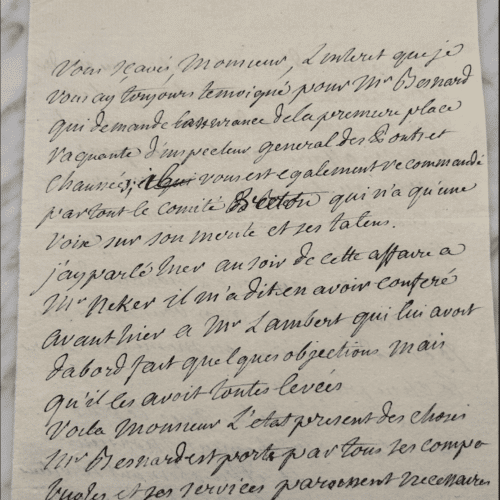 Vous sçavés, Monsieur, L'interet que je
vous ay toujours temoigné pour Mr Besnard
qui demande lassurance de la premiere place
vaquante d'inspecteur general des Ponts et
Chaussées, il vous est egalement recommandé
par tout le comité qui n'a qu'une
voix sur son merite et ses talens.
j'ay parlé hier au soir de cette affaire a
Mr Neker il m'a dit en avoir conferé
avant hier a Mr Lambert qui lui avoit
d'abord fait quelques objections mais
qu'il les avoit toutes levées
Voila Monsieur L'etat present des choses
Mr Besnard est porté par tous ses compa
et ses services paroissent necessaires